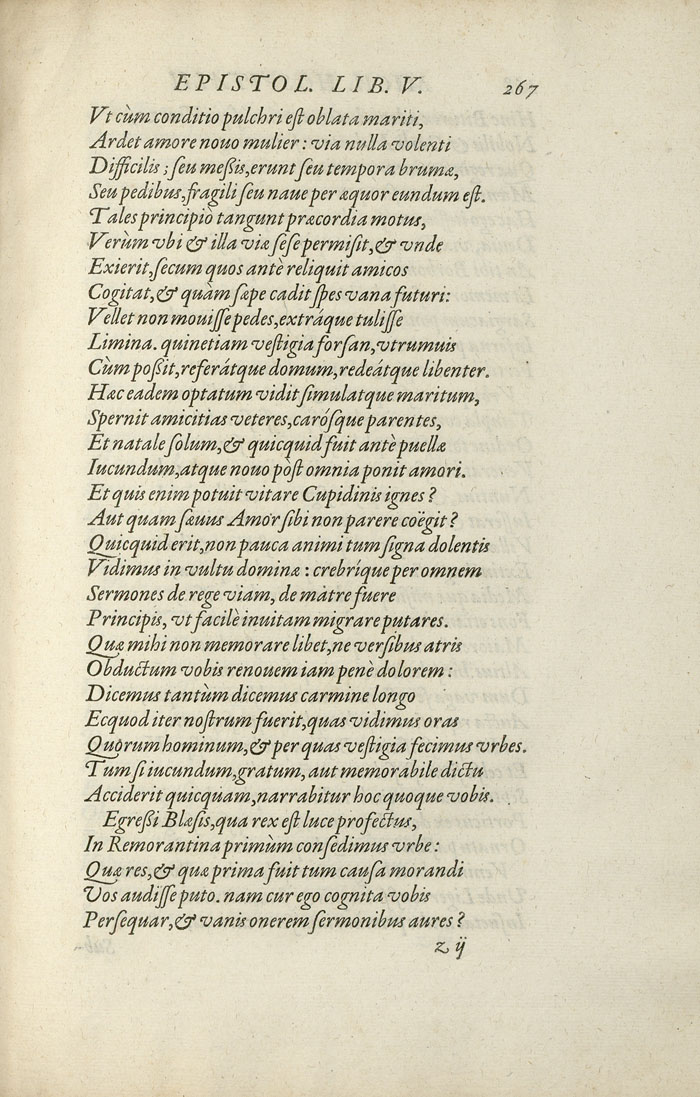 EPISTOL. LIB. V. 267
Vt cùm conditio pulchri est oblata mariti,
Ardet amore nouo mulier: via nulla volenti
Difficilis; seu meßis, erunt seu tempora brumæ,
Seu pedibus, fragili seu naue per æquor eundum est.
Tales principiò tangunt præcordia motus,
Verùm vbi & illa viæ sese permisit, & vnde
Exierit, secum quos antè reliquit amicos
Cogitat, & quàm sæpe cadit spes vana futuri:
Vellet non mouisse pedes, extráque tulisse
Limina. quinetiam vestigia forsan, vtrumuis
Cùm poßit, referátque domum, redeátque libenter.
Hæc eadem optatum vidit simulatque maritum,
Spernit amicitias veteres, carósque parentes,
Et natale solum, & quicquid fuit antè puellæ
Iucundum, atque nouo pòst omnia ponit amori.
Et quis enim potuit vitare Cupidinis ignes?
Aut quam sæuus Amor sibi non parere coëgit?
Quicquid erit, non pauca animi tum signa dolentis
Vidimus in vultu dominæ: crebríque per omnem
Sermones de rege viam, de matre fuere
Principis, vt facilè inuitam migrare putares.
Quæ mihi non memorare libet, ne versibus atris
Obductum vobis renouem iam penè dolorem:
Dicemus tantùm dicemus carmine longo
Ecquod iter nostrum fuerit, quas vidimus oras
Quorum hominum, & per quas vestigia fecimus vrbes.
Tum si iucundum, gratum, aut memorabile dictu
Acciderit quicquam, narrabitur hoc quoque vobis.
Egreßi Blæsis, qua rex est luce profectus,
In Remorantina primùm consedimus vrbe:
Quæ res, & quæ prima fuit tum causa morandi
Vos audisse puto. nam cur ego cognita vobis
Persequar, & vanis onerem sermonibus aures?
z ij